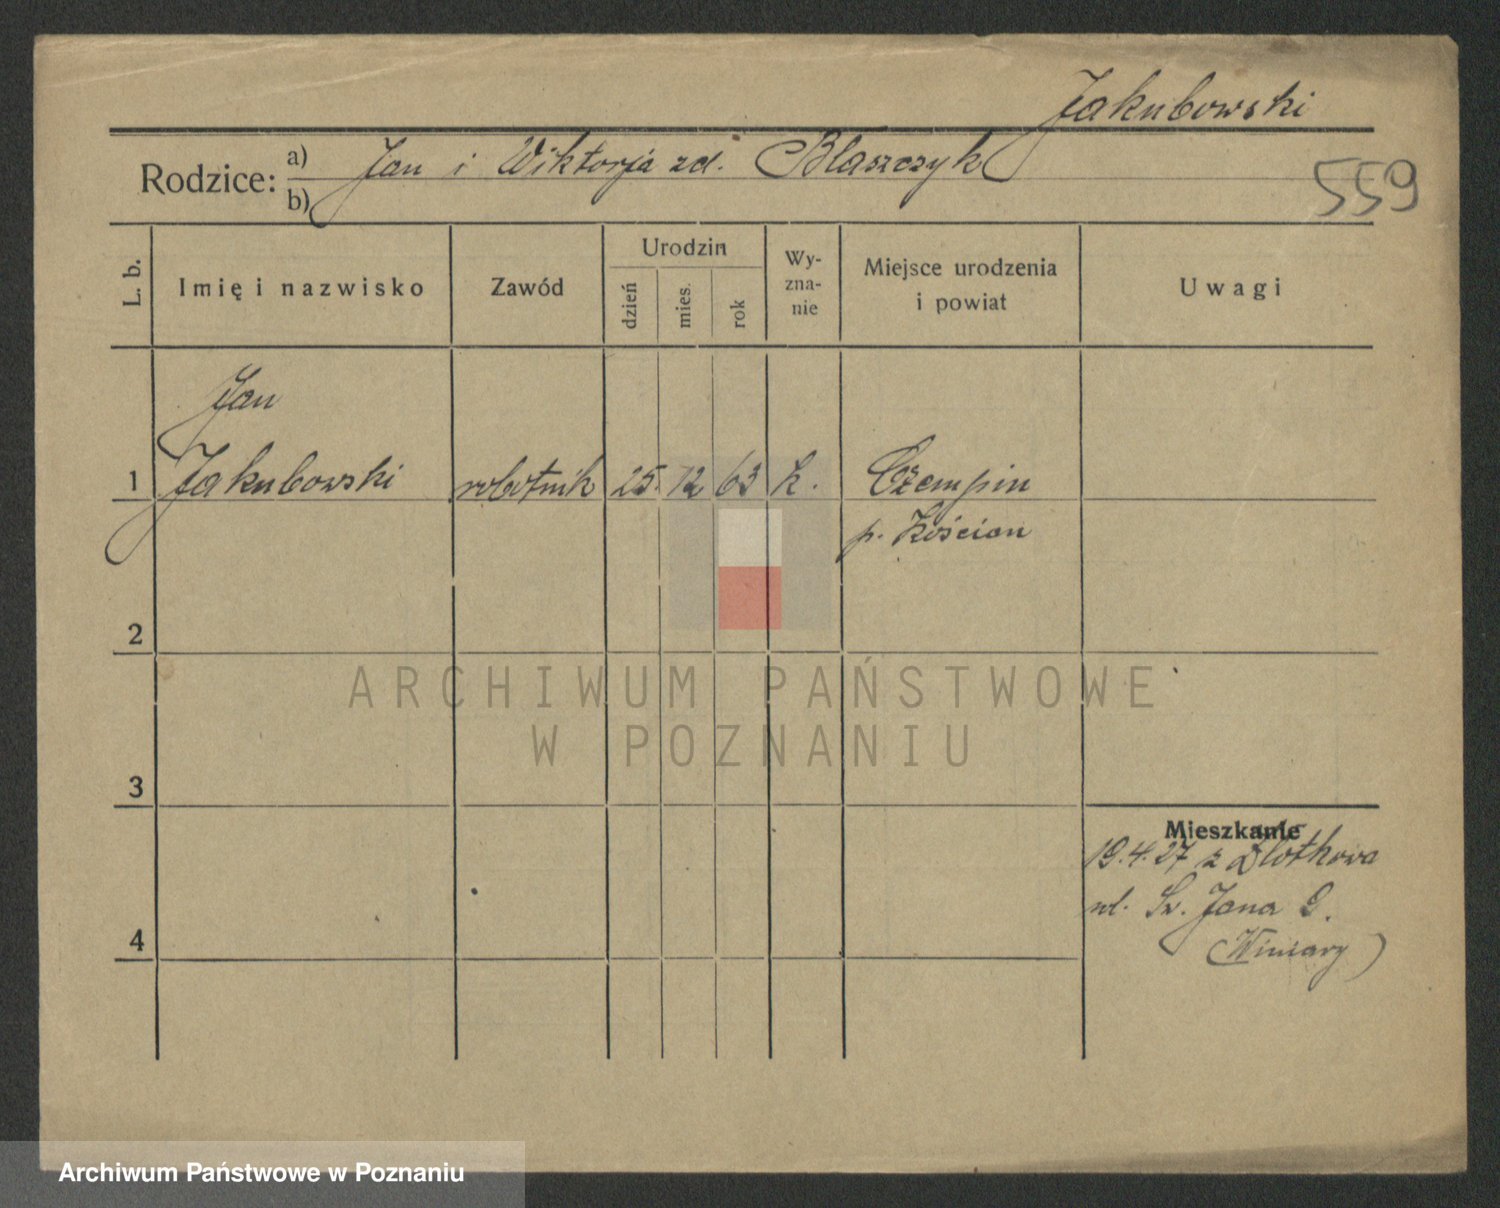 Jakubowski
Rodzice: a) Jan i Wiktorja zd. Blaszczyk
b)
559
L. b.
Imię i nazwisko
Zawód
Urodzin
dzień
mies.
rok
Wy-
zna-
nie
Miejsce urodzenia
i powiat
Uwagi
Jan
1 Jakubowski robotnik 25. 12 63 k. Czempin
p. Kościan
2
ARCHIWUM PAŃSTWOWE
W POZNANIU
3
Mieszkanie
19.4.27 z Złotkowa
ul. Św. Jana 9.
4
(Winiary)
Archiwum Państwowe w Poznaniu